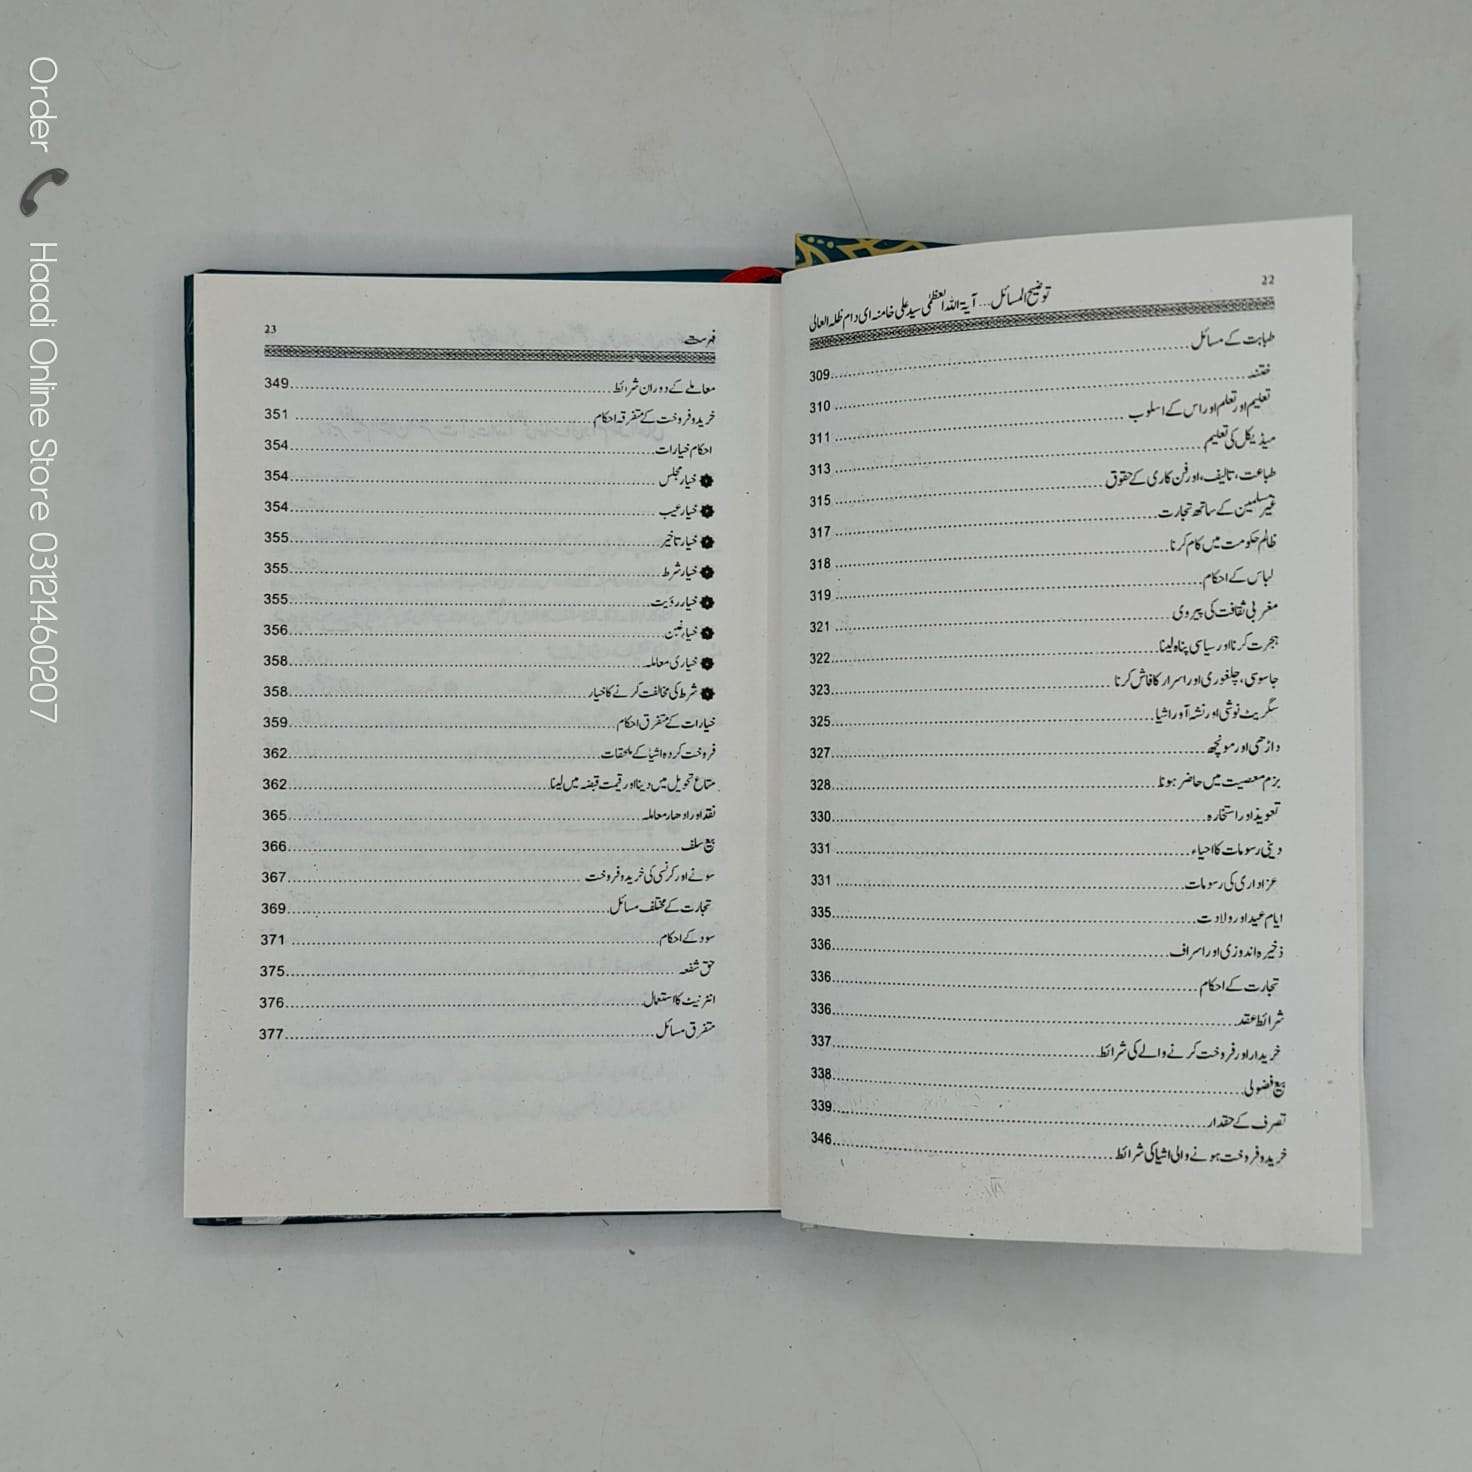 Order Haadi Online Store 03121460207
22
توضیح المسائل... آیۃ اللہ العظمٰی سید علی خامنہ ای دام ظلہ العالی
طبابت کے مسائل ... 309
ختنہ ... 310
تعلیم اور تعلم اور اس کے اسلوب ... 311
میڈیکل کی تعلیم ... 313
طباعت، تالیف، اور فن کاری کے حقوق ... 315
غیر مسلمین کے ساتھ تجارت ... 317
ظالم حکومت میں کام کرنا ... 318
لباس کے احکام ... 319
مغربی ثقافت کی پیروی ... 321
ہجرت کرنا اور سیاسی پناہ لینا ... 322
جاسوسی، چغلخوری اور اسرار کا فاش کرنا ... 323
سگریٹ نوشی اور نشہ آور اشیا ... 325
داڑھی اور مونچھ ... 327
بزم معصیت میں حاضر ہونا ... 328
تعویذ اور استخارہ ... 330
دینی رسومات کا احیاء ... 331
عزاداری کی رسومات ... 331
ایام عید اور ولادت ... 335
ذخیرہ اندوزی اور اسراف ... 336
تجارت کے احکام ... 336
شرائط عقد ... 336
خریدار اور فروخت کرنے والے کی شرائط ... 337
بیع فضولی ... 338
تصرف کے حقدار ... 339
خرید و فروخت ہونے والی اشیا کی شرائط ... 346
فہرست 23
معاملے کے دوران شرائط ... 349
خرید و فروخت کے متفرقہ احکام ... 351
احکام خیارات ... 354
خیار مجلس ... 354
خیار عیب ... 354
خیار تاخیر ... 355
خیار شرط ... 355
خیار رؤیت ... 355
خیار غبن ... 356
خیاری معاملہ ... 358
شرط کی مخالفت کرنے کا خیار ... 358
خیارات کے متفرق احکام ... 359
فروخت کردہ اشیا کے ملحقات ... 362
متاع تحویل میں دینا اور قیمت قبضہ میں لینا ... 362
نقد اور ادھار معاملہ ... 365
بیع سلف ... 366
سونے اور کرنسی کی خرید و فروخت ... 367
تجارت کے مختلف مسائل ... 369
سود کے احکام ... 371
حق شفعہ ... 375
انٹرنیٹ کا استعمال ... 376
متفرق مسائل ... 377